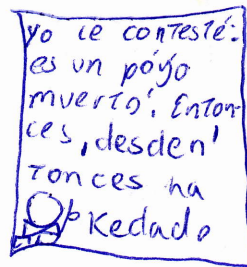 yo le contesté:
es un póyo
muerto'. Enton-
ces, desden'
tonces ha
kedado